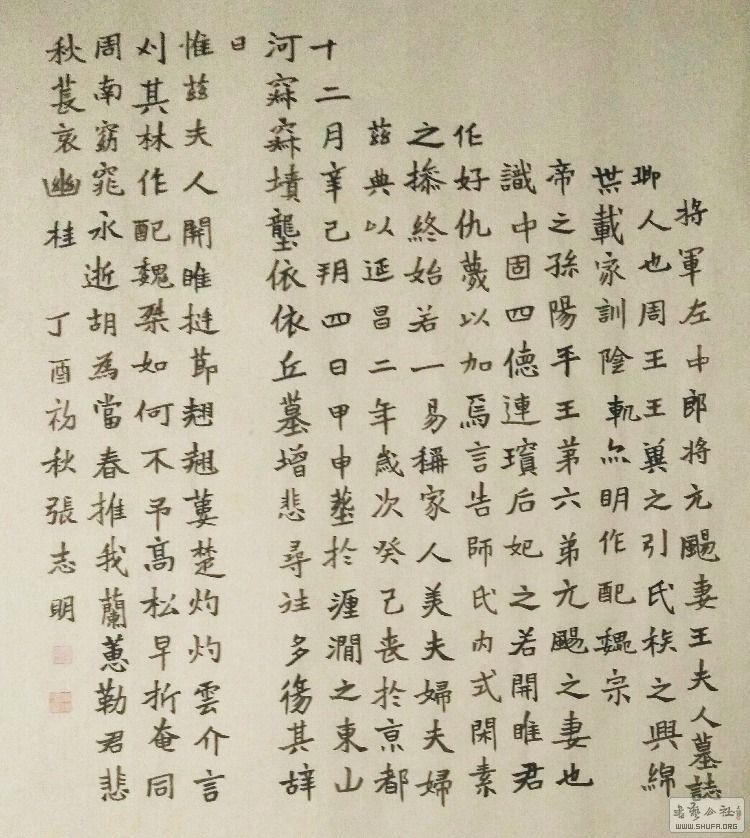 将軍左中郎将元颺妻王夫人墓誌
瑘人也周王王之引氏族之興綿
世載家訓陰軌亦明作配魏宗
帝之孫陽平王第六弟元颺之妻也
識中固四德連璸后妃之若開雎君
作好仇薎以加焉言告師氏内式閑素
之操終始若一易稱家人美夫婦夫婦
茲典以延昌二年歲次癸己喪於京都
十二月辛己朔四日甲申葬於瀍澗之東山
河寐寐墳壟依依丘墓增悲尋往多傷其辞
曰
惟茲夫人開雎挺節翹翹蔞楚灼灼雲介言
刈其林作配魏桀如何不弔高松早折奄同
周南窈窕永逝胡為當春摧我蘭蕙勒君悲
秋萇哀幽桂 丁酉初秋張志明
WWW.SHUFA.ORG